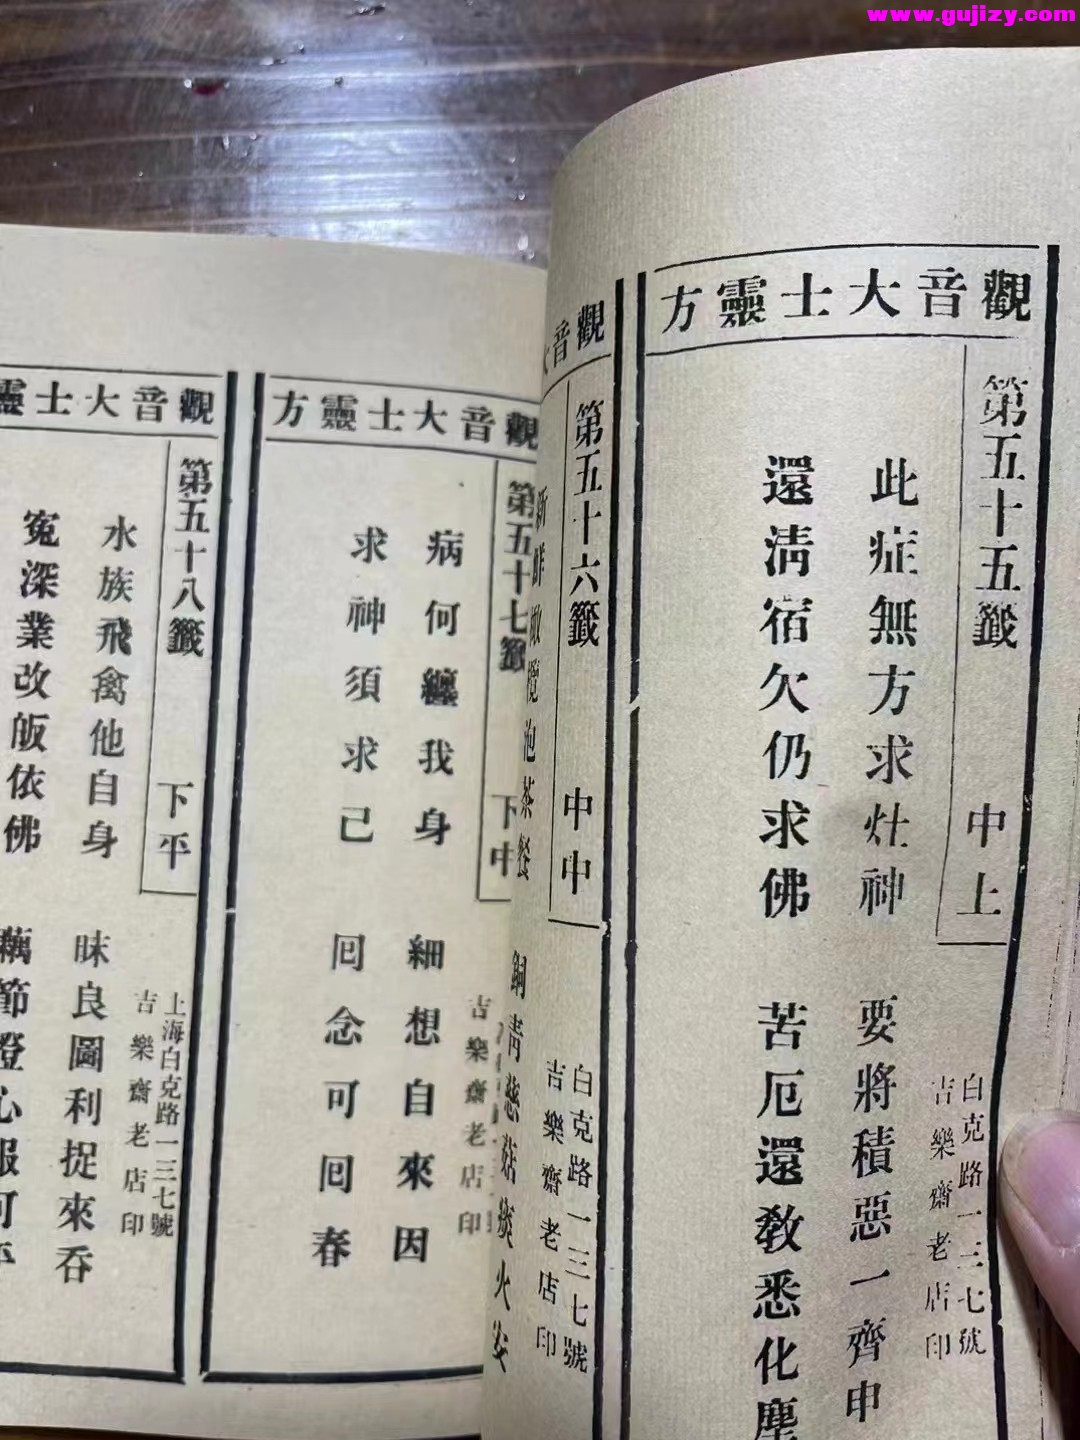 www.gujizy.com
觀音大士靈方
第五十五籤
中上
白克路一三七號
吉樂齋老店印
此症無方求灶神 要將積惡一齊申
還淸宿欠仍求佛 苦厄還教悉化塵
觀音
第五十六籤
中中
白克路一三七號
吉樂齋老店印
橄欖泡茶餐 銅青慈菇痰火安
觀音大士靈方
第五十七籤
下中
吉樂齋老店印
病何纏我身 細想自來因
求神須求己 回念可回春
觀音大士靈
第五十八籤
下平
上海白克路一三七號
吉樂齋老店印
水族飛禽他自身 昧良圖利捉來吞
冤深業改皈依佛 藕節澄心服可平